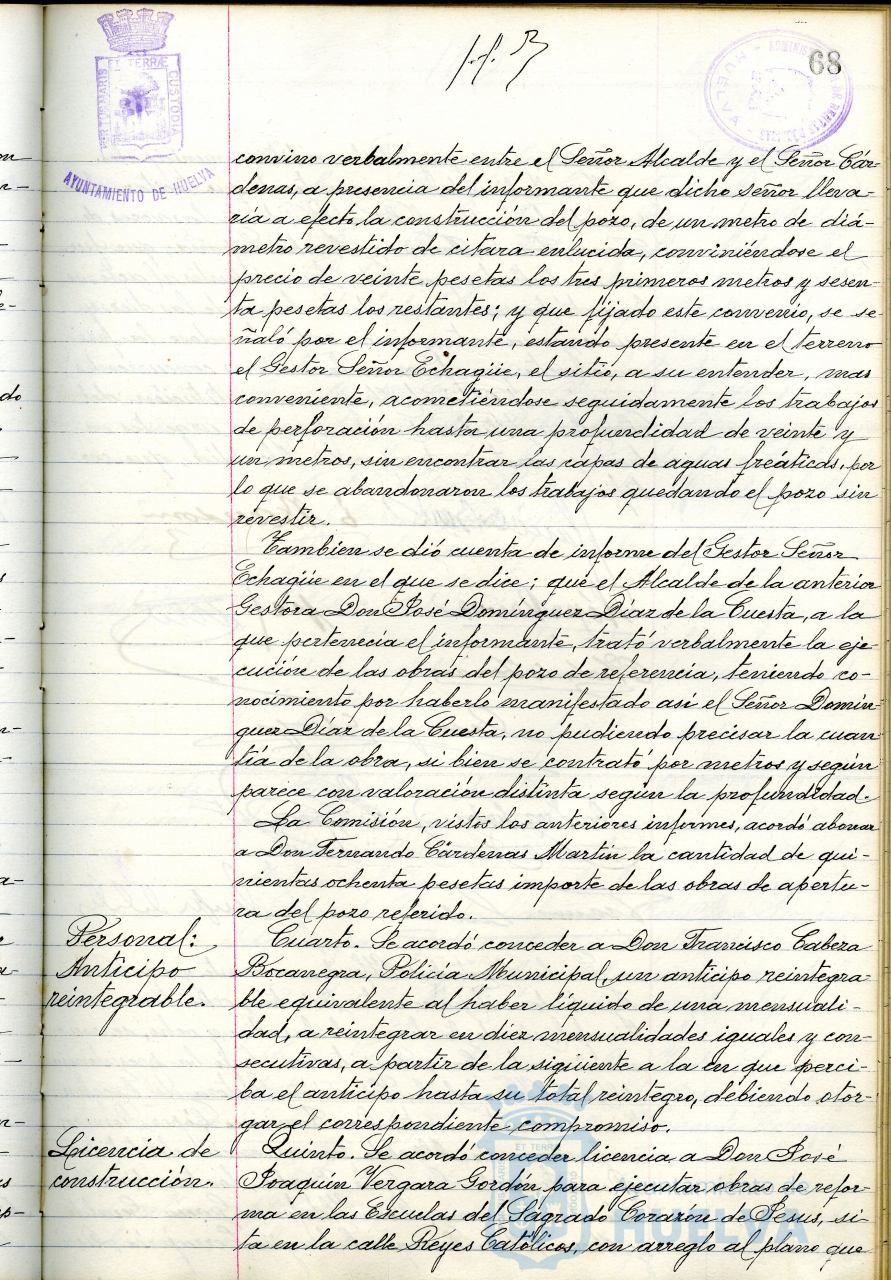 68
PORTUS MARIS ET TERRÆ CUSTODIA
AYUNTAMIENTO DE HUELVA
convino verbalmente entre el Señor Alcalde y el Señor Cár-
denas, a presencia del informante que dicho señor lleva-
ría a efecto la construcción del pozo, de un metro de diá-
metro revestido de citara enlucida, conviniéndose el
precio de veinte pesetas los tres primeros metros y sesen-
ta pesetas los restantes; y que fijado este convenio, se se-
ñaló por el informante, estando presente en el terreno
el Gestor Señor Echagüe, el sitió, a su entender, mas
conveniente, acometiéndose seguidamente los trabajos
de perforación hasta una profundidad de veinte y
un metros, sin encontrar las capas de aguas freáticas, por
lo que se abandonaron los trabajos quedando el pozo sin
revestir.
Tambien se dió cuenta de informe del Gestor Señor
Echagüe en el que se dice; que el Alcalde de la anterior
Gestora Don José Domínguez Díaz de la Cuesta, a la
que pertenecía el informante, trató verbalmente la eje-
cución de las obras del pozo de referencia, teniendo co-
nocimiento por haberlo manifestado así el Señor Domín-
guez Díaz de la Cuesta, no pudiendo precisar la cuan-
tía de la obra, si bien se contrató por metros y según
parece con valoración distinta según la profundidad.
La Comisión, vistos los anteriores informes, acordó abonar
a Don Fernando Cárdenas Martín la cantidad de qui-
nientas ochenta pesetas importe de las obras de apertu-
ra del pozo referido.
Personal:
Anticipo
reintegrable.
Cuarto. Se acordó conceder a Don Francisco Cabeza
Bocanegra, Policía Municipal, un anticipo reintegra-
ble equivalente al haber líquido de una mensuali-
dad, a reintegrar en diez mensualidades iguales y con-
secutivas, a partir de la siguiente a la en que perci-
ba el anticipo hasta su total reintegro, debiendo otor-
gar el correspondiente compromiso.
Licencia de
construcción.
Quinto. Se acordó conceder licencia a Don José
Joaquín Vergara Gordón para ejecutar obras de refor-
ma en las Escuelas del Sagrado Corazón de Jesus, si-
ta en la calle Reyes Católicos, con arreglo al plano que
HUELVA